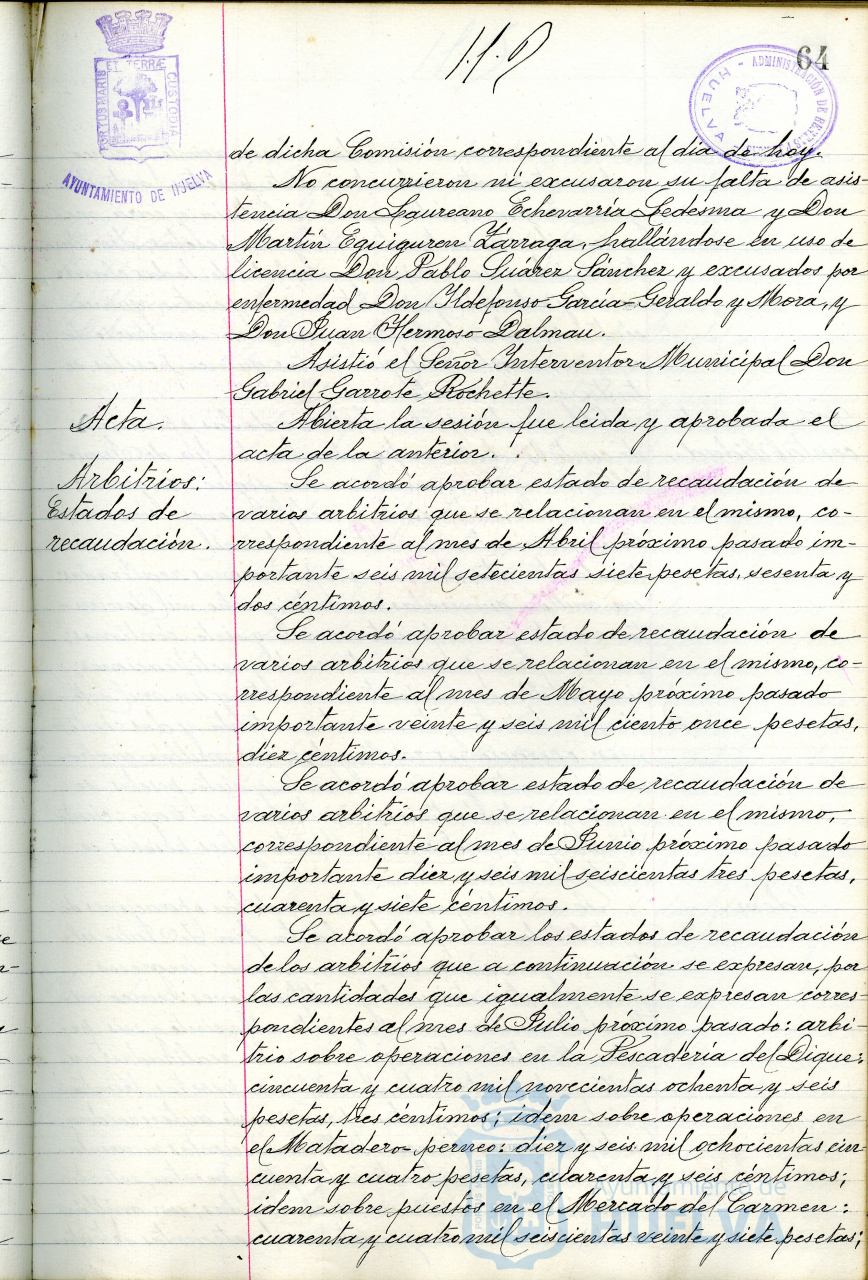 64
PORTUS MARIS ET TERRÆ CUSTODIA
AYUNTAMIENTO DE HUELVA
ADMINISTRACIÓN DE
HUELVA
de dicha Comisión correspondiente al día de hoy.
No concurrieron ni excusaron su falta de asis-
tencia Don Laureano Echevarría Ledesma y Don
Martín Eguiguren Zárraga, hallándose en uso de
licencia Don Pablo Suárez Sánchez y excusados por
enfermedad Don Yldefonso García-Geraldo y Mora, y
Don Juan Hermoso Dalmau.
Asistió el Señor Ynterventor Municipal Don
Gabriel Garrote Rochette.
Acta.
Abierta la sesión fue leida y aprobada el
acta de la anterior.
Arbitrios:
Estados de
recaudación.
Se acordó aprobar estado de recaudación de
varios arbitrios que se relacionan en el mismo, co-
rrespondiente al mes de Abril próximo pasado im-
portante seis mil setecientas siete pesetas, sesenta y
dos céntimos.
Se acordó aprobar estado de recaudación de
varios arbitrios que se relacionan en el mismo, co-
rrespondiente al mes de Mayo próximo pasado
importante veinte y seis mil ciento once pesetas,
diez céntimos.
Se acordó aprobar estado de recaudación de
varios arbitrios que se relacionan en el mismo,
correspondiente al mes de Junio próximo pasado
importante diez y seis mil seiscientas tres pesetas,
cuarenta y siete céntimos.
Se acordó aprobar los estados de recaudación
de los arbitrios que a continuación se expresan, por
las cantidades que igualmente se expresan corres-
pondientes al mes de Julio próximo pasado: arbi-
trio sobre operaciones en la Pescadería del Dique:
cincuenta y cuatro mil novecientas ochenta y seis
pesetas, tres céntimos; idem sobre operaciones en
el Matadero-perneo: diez y seis mil ochocientas cin-
cuenta y cuatro pesetas, cuarenta y seis céntimos;
idem sobre puestos en el Mercado del Carmen:
cuarenta y cuatro mil seiscientas veinte y siete pesetas;
Ayuntamiento de
HUELVA